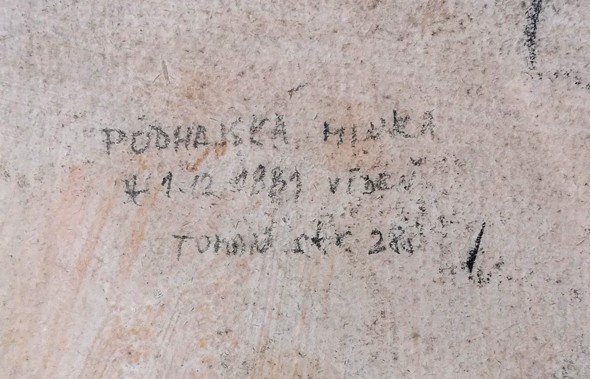 PODHAJSKÁ MINKA
* 1.12.1881 VÍDEŇ
TOMAN str. 285